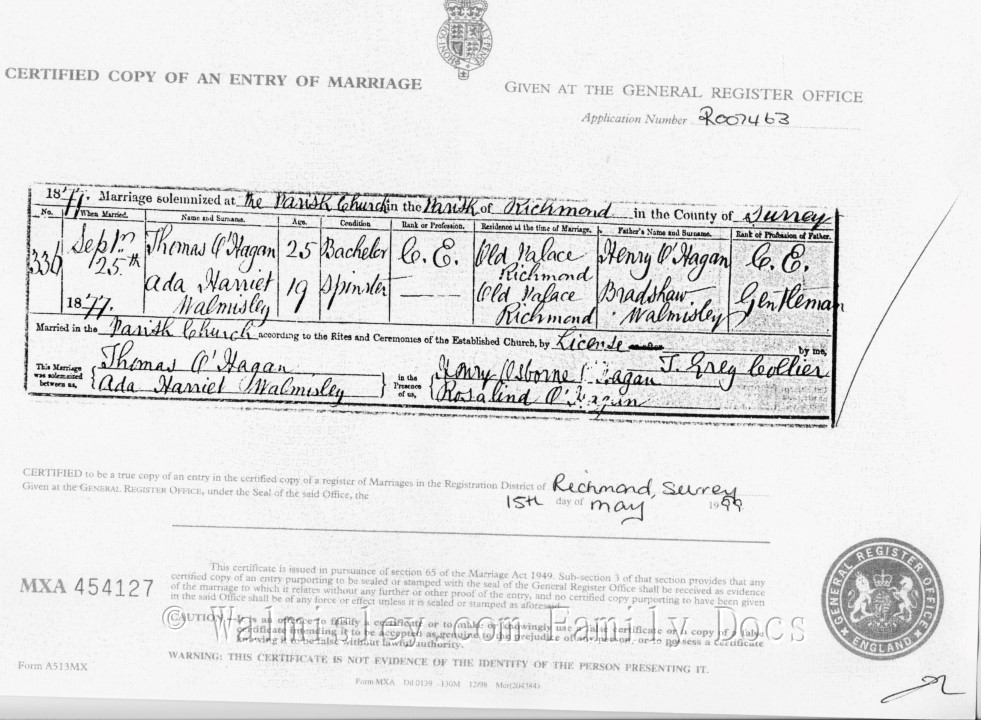 CERTIFIED COPY OF AN ENTRY OF MARRIAGE
GIVEN AT THE GENERAL REGISTER OFFICE
Application Number R007463
1877. Marriage solemnized at the Parish Church in the Parish of Richmond in the County of Surrey
No. When Married. Name and Surname. Age. Condition Rank or Profession. Residence at the time of Marriage. Father's Name and Surname. Rank or Profession of Father.
336 Septr 25th 1877. Thomas O'Hagan 25 Bachelor C. E. Old Palace Richmond Henry O'Hagan C. E.
Ada Harriet Walmisley 19 Spinster Old Palace Richmond Bradshaw Walmisley Gentleman
Married in the Parish Church according to the Rites and Ceremonies of the Established Church, by License by me,
This Marriage was solemnized between us, Thomas O'Hagan in the Presence of us, Henry Osborne O'Hagan T. Greg Collier
Ada Harriet Walmisley Rosalind O'Hagan
CERTIFIED to be a true copy of an entry in the certified copy of a register of Marriages in the Registration District of Richmond, Surrey
Given at the GENERAL REGISTER OFFICE, under the Seal of the said Office, the 15th day of May 1999
MXA 454127
This certificate is issued in pursuance of section 65 of the Marriage Act 1949. Sub-section 3 of that section provides that any
certified copy of an entry purporting to be sealed or stamped with the seal of the General Register Office shall be received as evidence
of the marriage to which it relates without any further or other proof of the entry, and no certified copy purporting to have been given
in the said Office shall be of any force or effect unless it is sealed or stamped as aforesaid.
CAUTION:- It is an offence to falsify a certificate or to make or knowingly use a false certificate or a copy of a false
certificate intending it to be accepted as genuine to the prejudice of any person, or to possess a certificate
knowing it to be false without lawful authority.
WARNING: THIS CERTIFICATE IS NOT EVIDENCE OF THE IDENTITY OF THE PERSON PRESENTING IT.
Form A513MX
Form MXA Dd 0139 130M 12/98 Mcr(204384)
GENERAL REGISTER OFFICE
ENGLAND
© Walmisley.com Family Docs